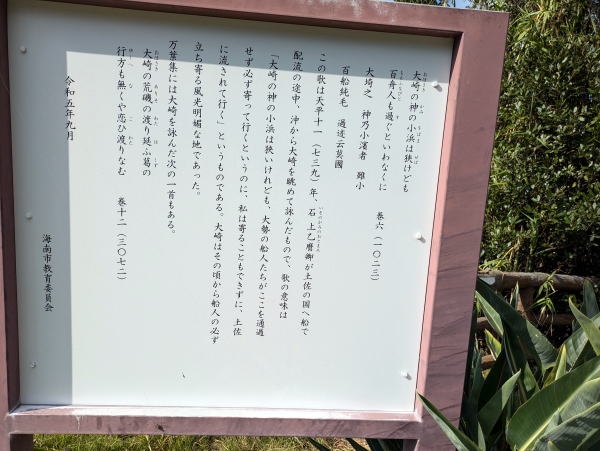 大崎の神の小浜は狭けども
百舟人も過ぐといわなくに
巻六（一〇二三）
大埼之　神乃小濱者　雖小
百船純毛　過迹云莫國
この歌は天平十一（七三九）年、石上乙麿卿が土佐の国へ船で
配流の途中、沖から大崎を眺めて詠んだもので、歌の意味は
「大崎の神の小浜は狭いけれども、大勢の船人たちがここを通過
せず必ず寄って行くというのに、私は寄ることもできずに、土佐
に流されて行く」というものである。大崎はその頃から船人の必ず
立ち寄る風光明媚な地であった。
万葉集には大崎を詠んだ次の一首もある。
大崎の荒磯の渡り延ふ葛の
行方も無くや恋ひ渡りなむ
巻十二（三〇七二）
令和五年九月
海南市教育委員会